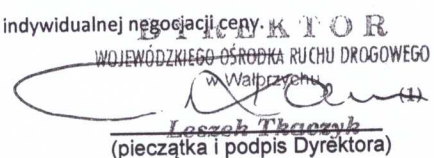 indywidualnej negocjacji ceny.
DYREKTOR
WOJEWÓDZKIEGO OŚRODKA RUCHU DROGOWEGO
w Wałbrzychu
(1)
Leszek Tkaczyk
(pieczątka i podpis Dyrektora)